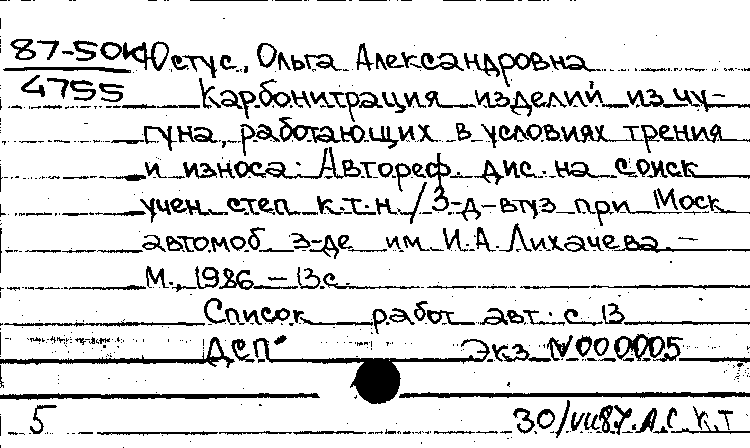 87-50к Юстус, Ольга Александровна
4755
Карбонитрация изделий из чу-
гуна, работающих в условиях трения
и износа: Автореф. дис. на соиск
учен. степ к.т.н. / З-д-втуз при Моск
автомоб. з-де им. И.А. Лихачева. –
М., 1986 – 13 с.
Список работ авт.: с 13
ДСП Экз N000005
5 30/VII87. А.С. К.Т